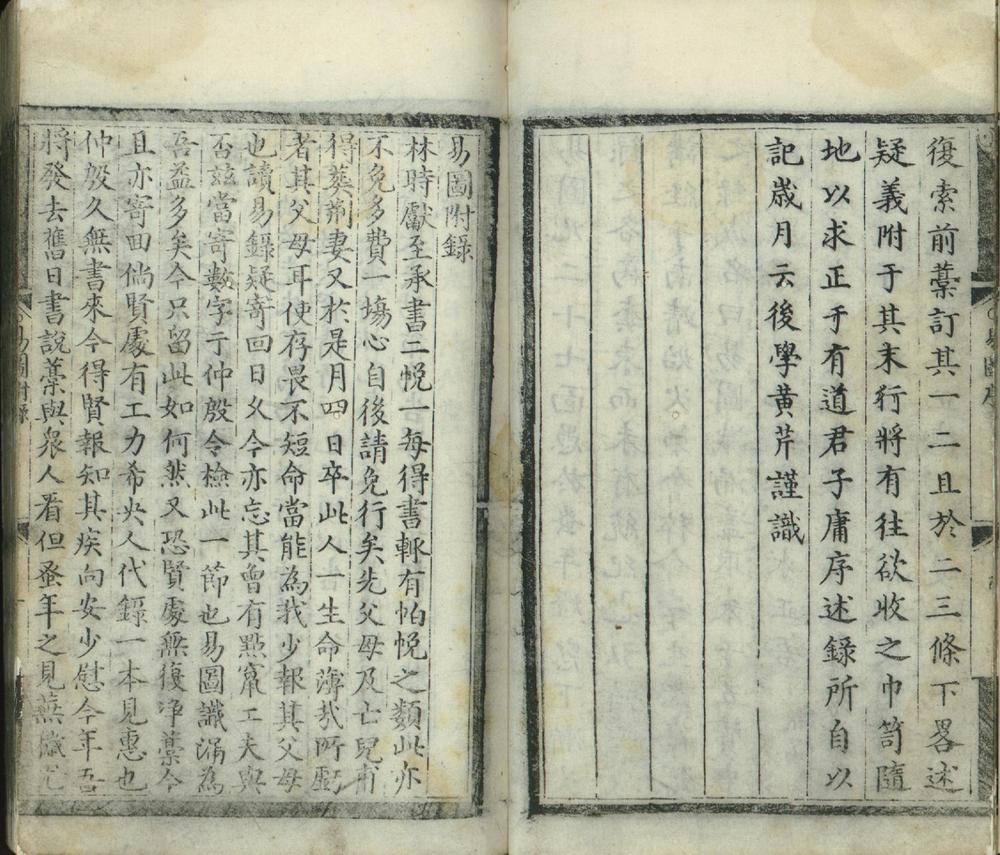 復索前藁訂其一二且於二三條下畧述
疑義附于其末行將有往欲收之巾笥隨
地以求正于有道君子庸序述錄所自以
記歲月云後學黃芹謹識
易圖附錄
林時獻至承書二悅一每得書輙有帕悅之類此亦
不免多費一塲心自後請免行矣先父母及亡兒甫
得葬荊妻又於是月四日卒此人一生命薄哉所虧
者其父母耳使存畏不短命當能為我少報其父母
也讀易錄疑寄回日久今亦忘其曾有點竄工夫與
否茲當寄數字于仲殷令檢此一節也易圖識漏為
吾益多矣今只留此如何然又恐賢處無復淨藁今
且亦寄回倘賢處有工力希央人代錄一本見惠也
仲殷久無書來今得賢報知其疾向安少慰今年吾
將發去舊日書說藁與衆人看但蚤年之見蕪
易圖附錄
易圖序